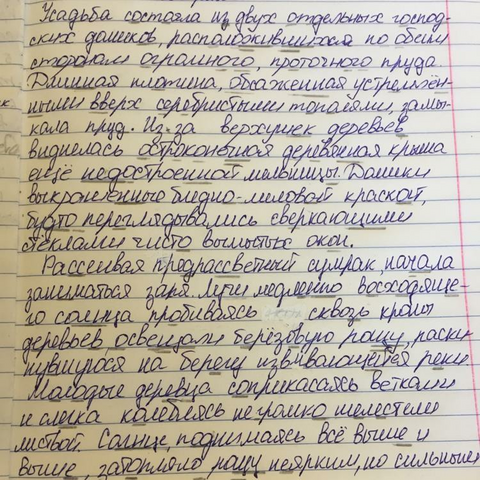 Усадьба состояла из двух отдельных господ-
ских домиков, расположившихся по обеим
сторонам огромного, проточного пруда.
Длинная плотина, обсаженная устремлён-
ными вверх серебристыми тополями, замы-
кала пруд. Из-за верхушек деревьев
виднелась остроконечная деревянная крыша
ещё недостроенной мельницы. Домики
выкрашенные бледно-лиловой краской,
будто переглядывались сверкающими
стёклами чисто вымытых окон.
Рассеивая предрассветный сумрак, начала
заниматься заря. Лучи медленно восходяще-
го солнца пробиваясь сквозь кроны
деревьев, освещали берёзовую рощу, раски
нувшуюся на берегу извивающейся реки
Молодые деревца соприкасаясь ветками
и слегка колеблясь негромко шелестели
листвой. Солнце, поднимаясь всё выше и
выше, затопляло рощу неярким, но сильным